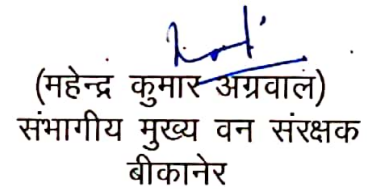 (महेन्द्र कुमार अग्रवाल)
संभागीय मुख्य वन संरक्षक
बीकानेर